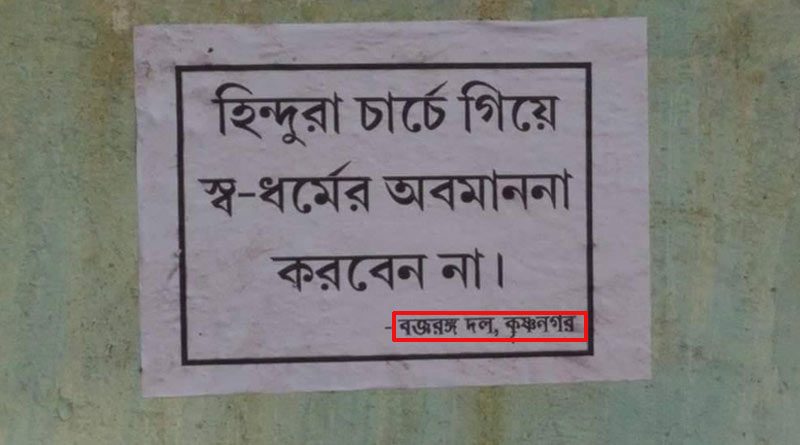 হিন্দুরা চার্চে গিয়ে
স্ব-ধর্মের অবমাননা
করবেন না।
- বজরঙ্গ দল, কৃষ্ণনগর